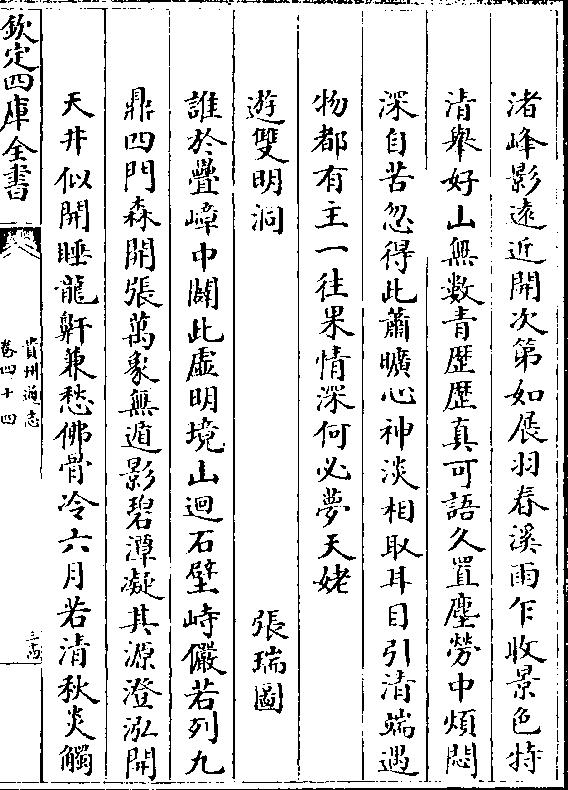 渚峰影遠近開次第如展羽春溪雨乍收景色特
清舉好山無數青歷歷真可語久置塵勞中煩悶
深自苦忽得此蕭曠心神淡相取耳目引清端遇
物都有主一往果情深何必夢天姥
遊雙明洞 張瑞圖
誰於疊嶂中闢此虛明境山迴石壁峙儼若列九
鼎四門森開張萬象無遁影碧潭凝其源澄泓開
天井似聞睡龍鼾兼愁佛骨冷六月若清秋炎觸
欽定四庫全書
貴州通志
卷四十四